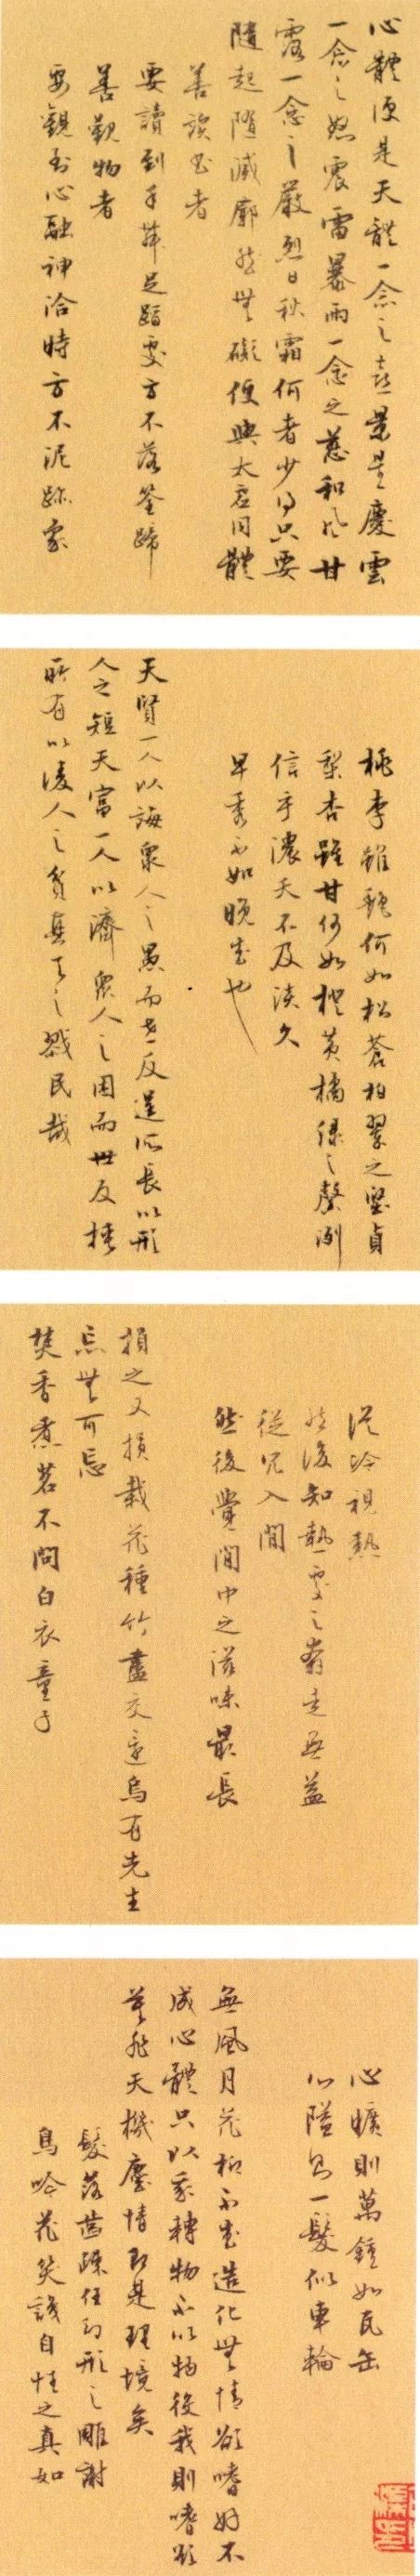 心體便是天體一念之喜景星慶雲
一念之怒震雷暴雨一念之慈和風甘
露一念之嚴烈日秋霜何者少得只要
隨起隨滅廓然無礙便與太虛同體
善讀書者
要讀到手舞足蹈處方不落筌蹄
善觀物者
要觀到心融神洽時方不泥跡象
桃李雖艷何如松蒼柏翠之堅貞
梨杏雖甘何如橙黃橘綠之馨冽
信乎濃夭不及淡久
早秀不如晚成也
天賢一人以誨眾人之愚而世反逞所長以形
人之短天富一人以濟眾人之困而世反挾
所有以凌人之貧真天之戮民哉
從冷視熱
然後知熱處之奔走無益
從冗入閒
然後覺閒中之滋味最長
損之又損栽花種竹盡交還烏有先生
忘無可忘
焚香煮茗不問白衣童子
心曠則萬鍾如瓦缶
心隘則一髮似車輪
無風月花柳不成造化無情欲嗜好不
成心體只以我轉物不以物役我則嗜欲
莫非天機塵情即是理境矣
髮落齒疎任幻形之彫謝
鳥吟花笑識自性之真如